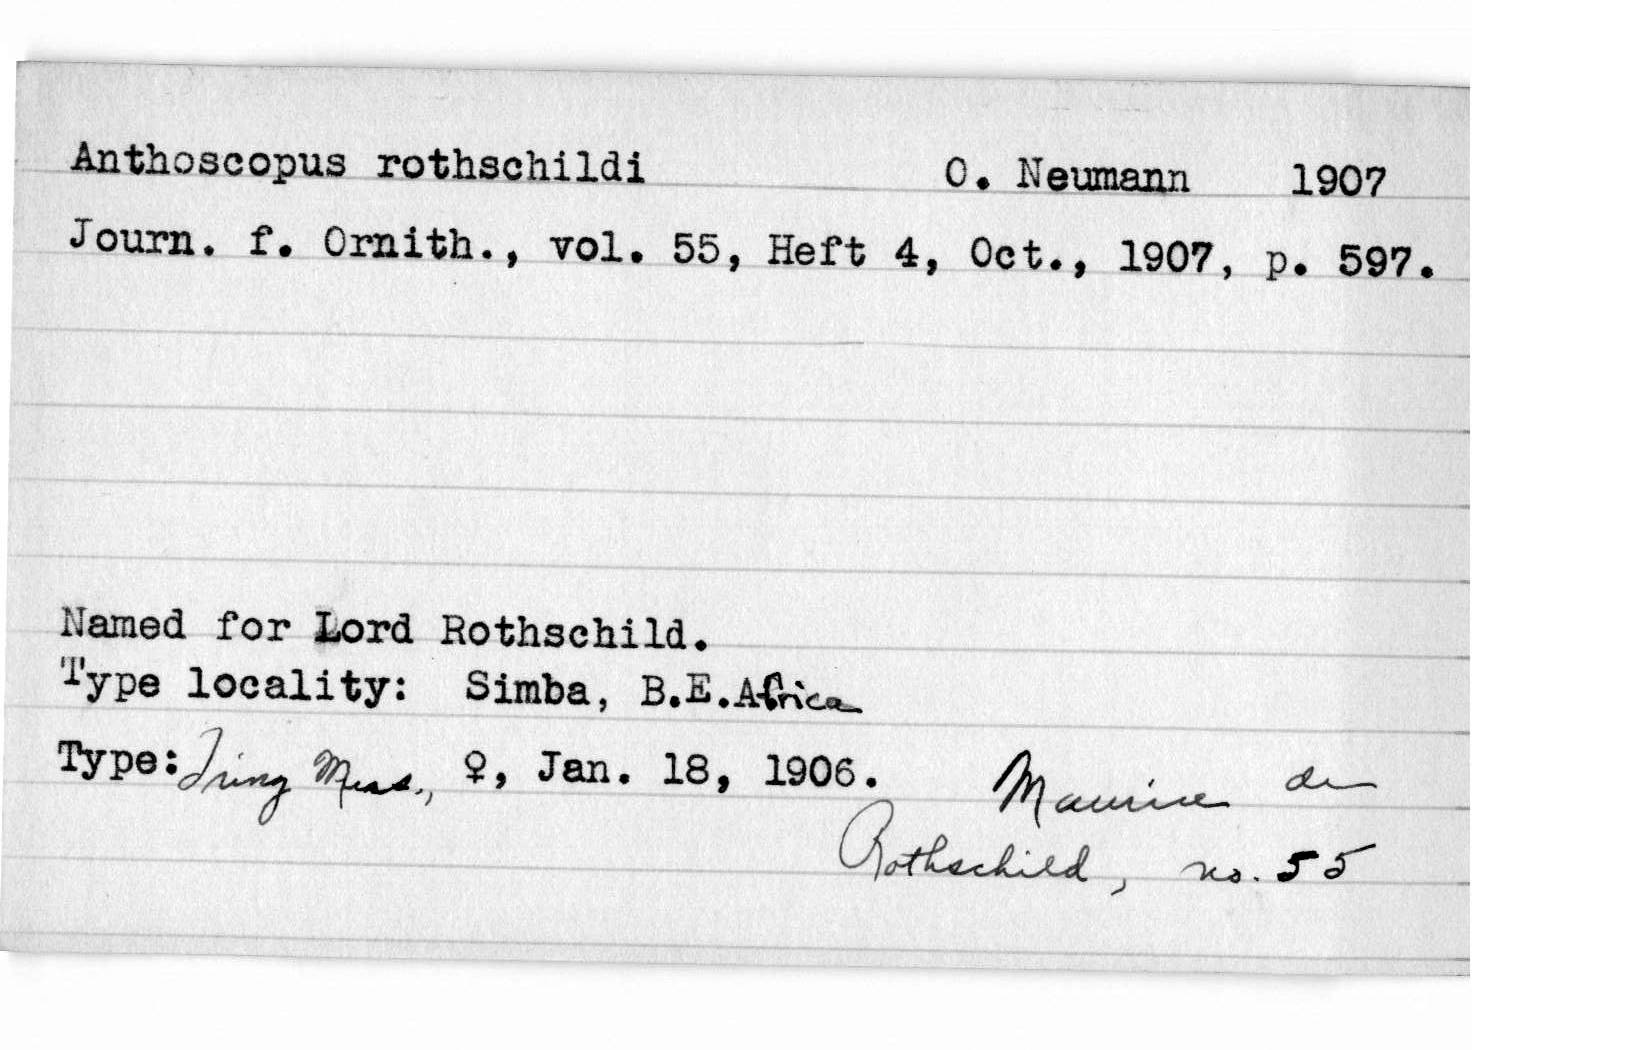 Anthoscopus rothschildi O. Neumann 1907
Journ. f. Ornith., vol. 55, Heft 4, Oct., 1907, p. 597.
Named for Lord Rothschild.
Type locality: Simba, B.E.Africa
Type: Tring Mus., ♀, Jan. 18, 1906. Maurice de
Rothschild, no. 55